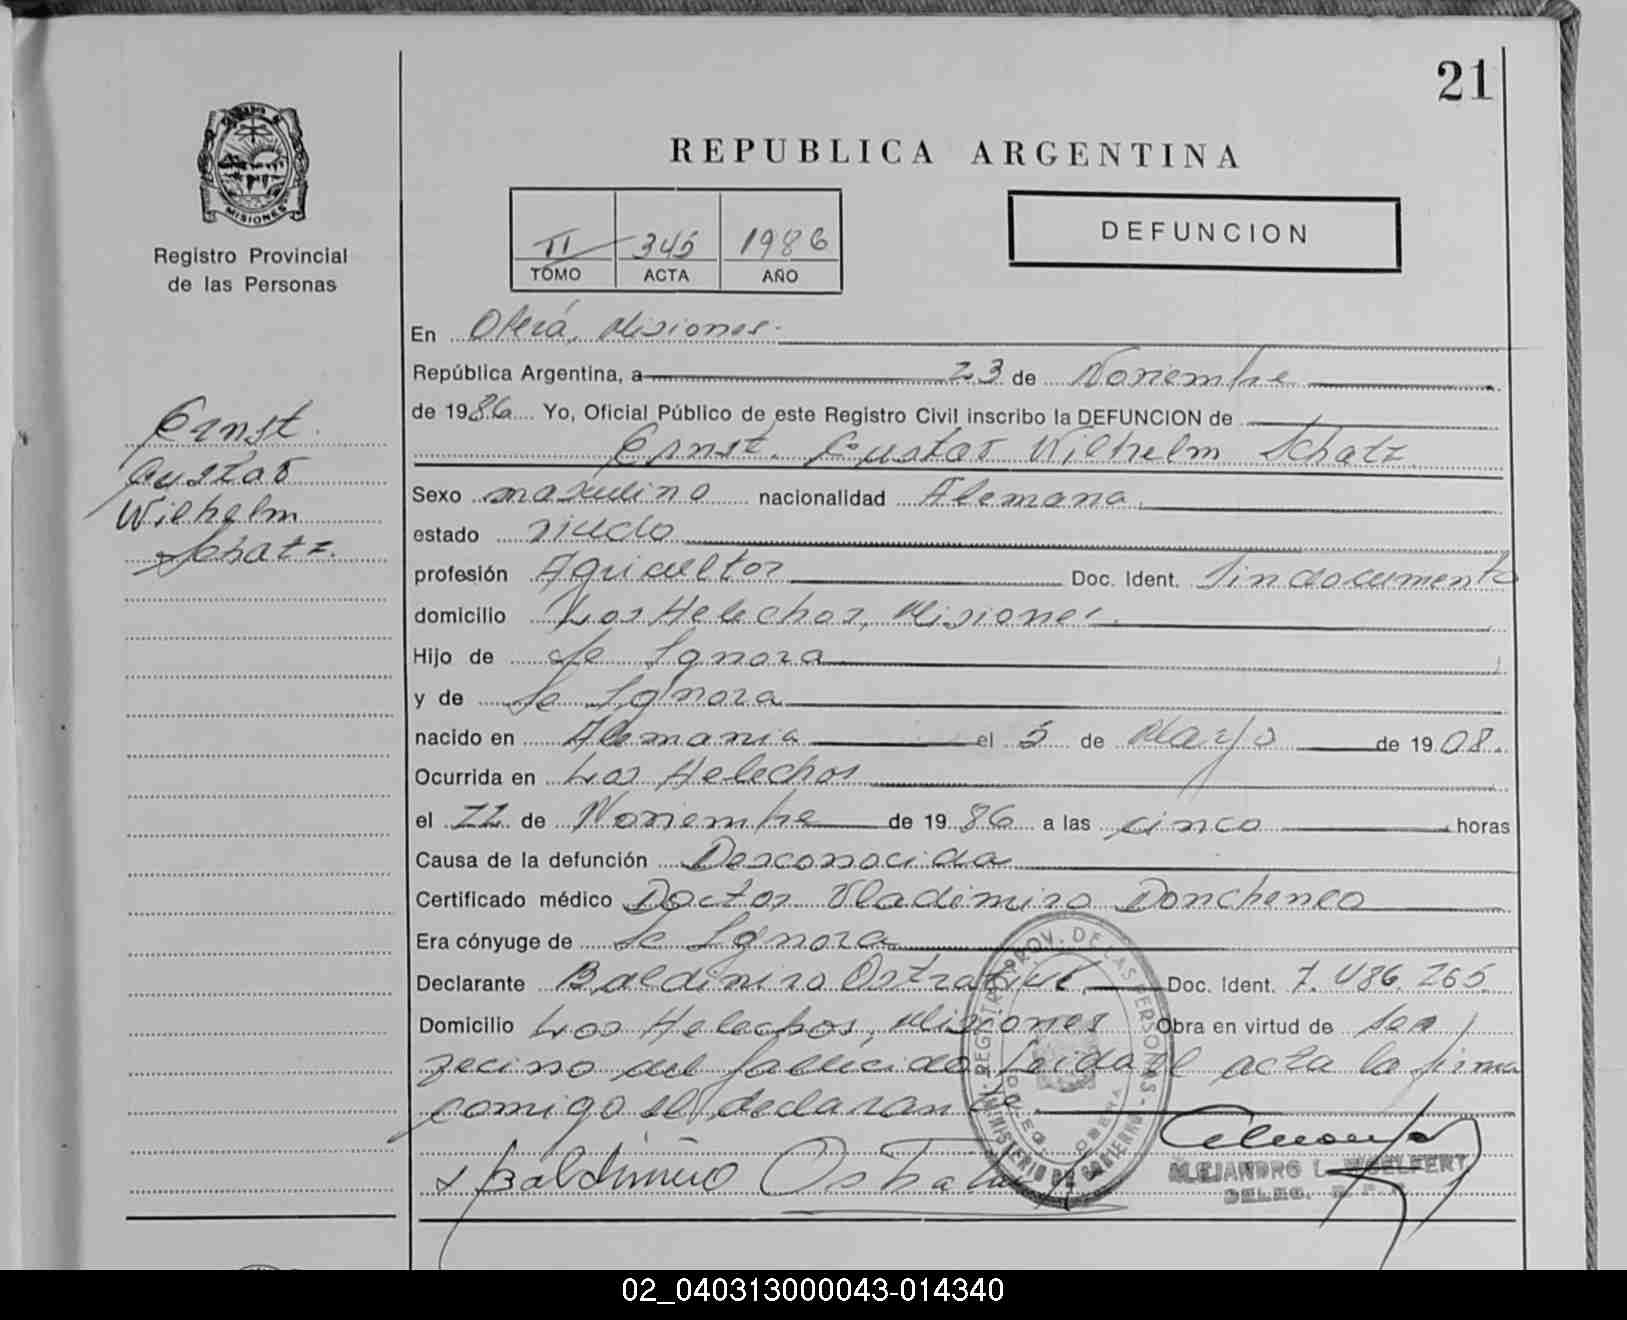 21
REPUBLICA ARGENTINA
MISIONES
Registro Provincial
de las Personas
II 345 1986
TOMO ACTA AÑO
DEFUNCION
Ernst
Gustav
Wilhelm
Schatz.
En Oberá, Misiones.
República Argentina, a 23 de Noviembre
de 1986 Yo, Oficial Público de este Registro Civil inscribo la DEFUNCION de
Ernst. Gustav Wilhelm Schatz
Sexo masculino nacionalidad Alemana.
estado viudo
profesión Agricultor Doc. Ident. Sin documento
domicilio Los Helechos, Misiones.
Hijo de Se Ignora
y de Se Ignora
nacido en Alemania el 5 de Mayo de 1908.
Ocurrida en Los Helechos
el 22 de Noviembre de 1986 a las cinco horas
Causa de la defunción Desconocida
Certificado médico Doctor Vladimiro Donchenco
Era cónyuge de Se Ignora
Declarante Baldimiro Doc. Ident. 7.486.265
Domicilio Los Helechos, Misiones Obra en virtud de ser
vecino del fallecido. Leida el acta la firma
comigo el declarante.
REGISTRO PROV. DE LAS PERSONAS
MINISTERIO DE GOBIERNO
DELEG. OBERA
Baldimiro
ALEJANDRO L. WOELFERT
DELEG. R. P. P.
02_040313000043-014340